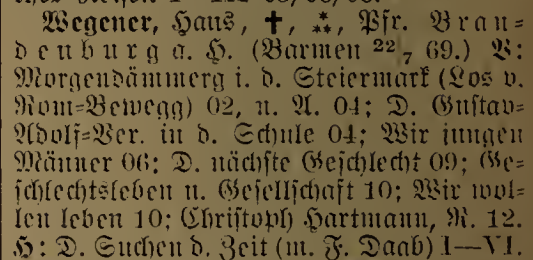 Wegener, Hans, ✝, ⁂, Pfr. Bran=
denburg a. H. (Barmen 22/7 69.) V:
Morgendämmerg i. d. Steiermark (Los v.
Rom=Bewegg) 02, n. A. 04; D. Gustav=
Adolf=Ver. in d. Schule 04; Wir jungen
Männer 06; D. nächste Geschlecht 09; Ge=
schlechtsleben u. Gesellschaft 10; Wir wol=
len leben 10; Christoph Hartmann, R. 12.
H: D. Suchen d. Zeit (m. F. Daab) I—VI.